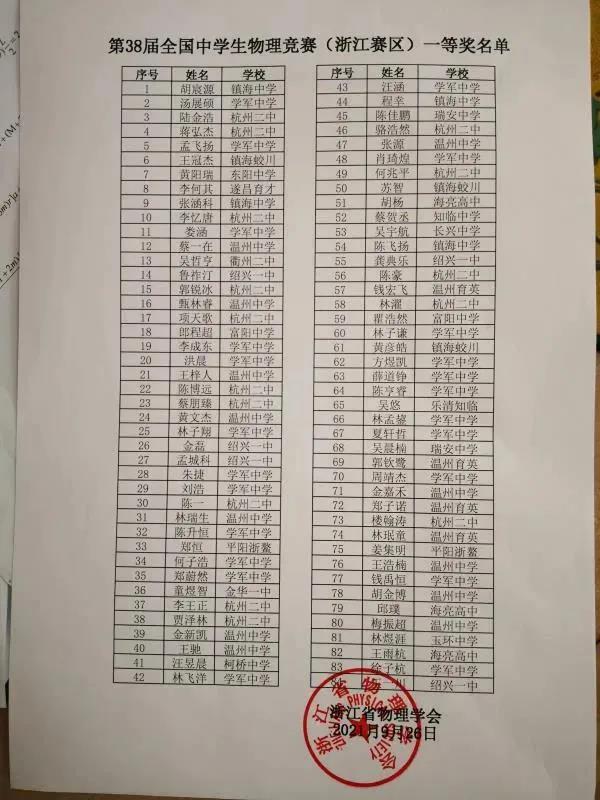 第38届全国中学生物理竞赛（浙江赛区）一等奖名单
序号 姓名 学校
1 胡宸源 镇海中学
2 汤展硕 学军中学
3 陆金浩 杭州二中
4 蒋弘杰 杭州二中
5 孟飞扬 学军中学
6 王冠杰 镇海蛟川
7 黄阳瑞 东阳中学
8 李何其 遂昌育才
9 张涵科 镇海中学
10 李忆唐 杭州二中
11 娄涵 学军中学
12 蔡一在 温州中学
13 吴哲亨 衢州二中
14 鲁祚汀 绍兴一中
15 郭锐冰 杭州二中
16 甄林睿 温州中学
17 项天歌 杭州二中
18 郎程超 富阳中学
19 李成东 学军中学
20 洪晨 学军中学
21 王梓人 温州中学
22 陈博远 杭州二中
23 蔡朋臻 杭州二中
24 黄文杰 温州中学
25 林子翔 学军中学
26 金磊 绍兴一中
27 孟城科 绍兴一中
28 朱捷 学军中学
29 刘浩 学军中学
30 陈一 杭州二中
31 林瑞生 温州中学
32 陈升恒 学军中学
33 郑恒 平阳浙鳌
34 何子浩 学军中学
35 郑蔚然 学军中学
36 童煜智 金华一中
37 李王正 杭州二中
38 贾泽林 杭州二中
39 金新凯 温州中学
40 王驰 温州中学
41 汪昱晨 柯桥中学
42 林飞洋 学军中学
序号 姓名 学校
43 汪涵 学军中学
44 程幸 镇海中学
45 陈佳鹏 瑞安中学
46 骆浩然 杭州二中
47 张源 温州中学
48 肖琦煌 学军中学
49 何兆平 杭州二中
50 苏智 镇海蛟川
51 胡杨 海亮高中
52 蔡贺丞 知临中学
53 吴宇航 长兴中学
54 陈飞扬 镇海中学
55 龚典乐 绍兴一中
56 陈豪 杭州二中
57 钱宏飞 温州育英
58 林濯 杭州二中
59 瞿浩然 富阳中学
60 林子谦 学军中学
61 黄彦皓 镇海蛟川
62 方煜凯 学军中学
63 薛道铮 学军中学
64 陈亨睿 学军中学
65 吴悠 乐清知临
66 林孟鋆 学军中学
67 夏轩哲 学军中学
68 吴晨楠 瑞安中学
69 郭钦鹭 温州育英
70 周靖杰 学军中学
71 金嘉禾 温州中学
72 郑子诺 温州育英
73 楼翰涛 杭州二中
74 林珉童 温州育英
75 姜集明 平阳浙鳌
76 王浩楠 温州中学
77 钱禹恒 学军中学
78 胡金博 温州中学
79 邱璞 海亮高中
80 梅振超 温州中学
81 林煜涯 玉环中学
82 王雨杭 海亮高中
83 徐子杭 学军中学
绍兴一中
浙江省物理学会
2021月9月26日
浙江省物理学会